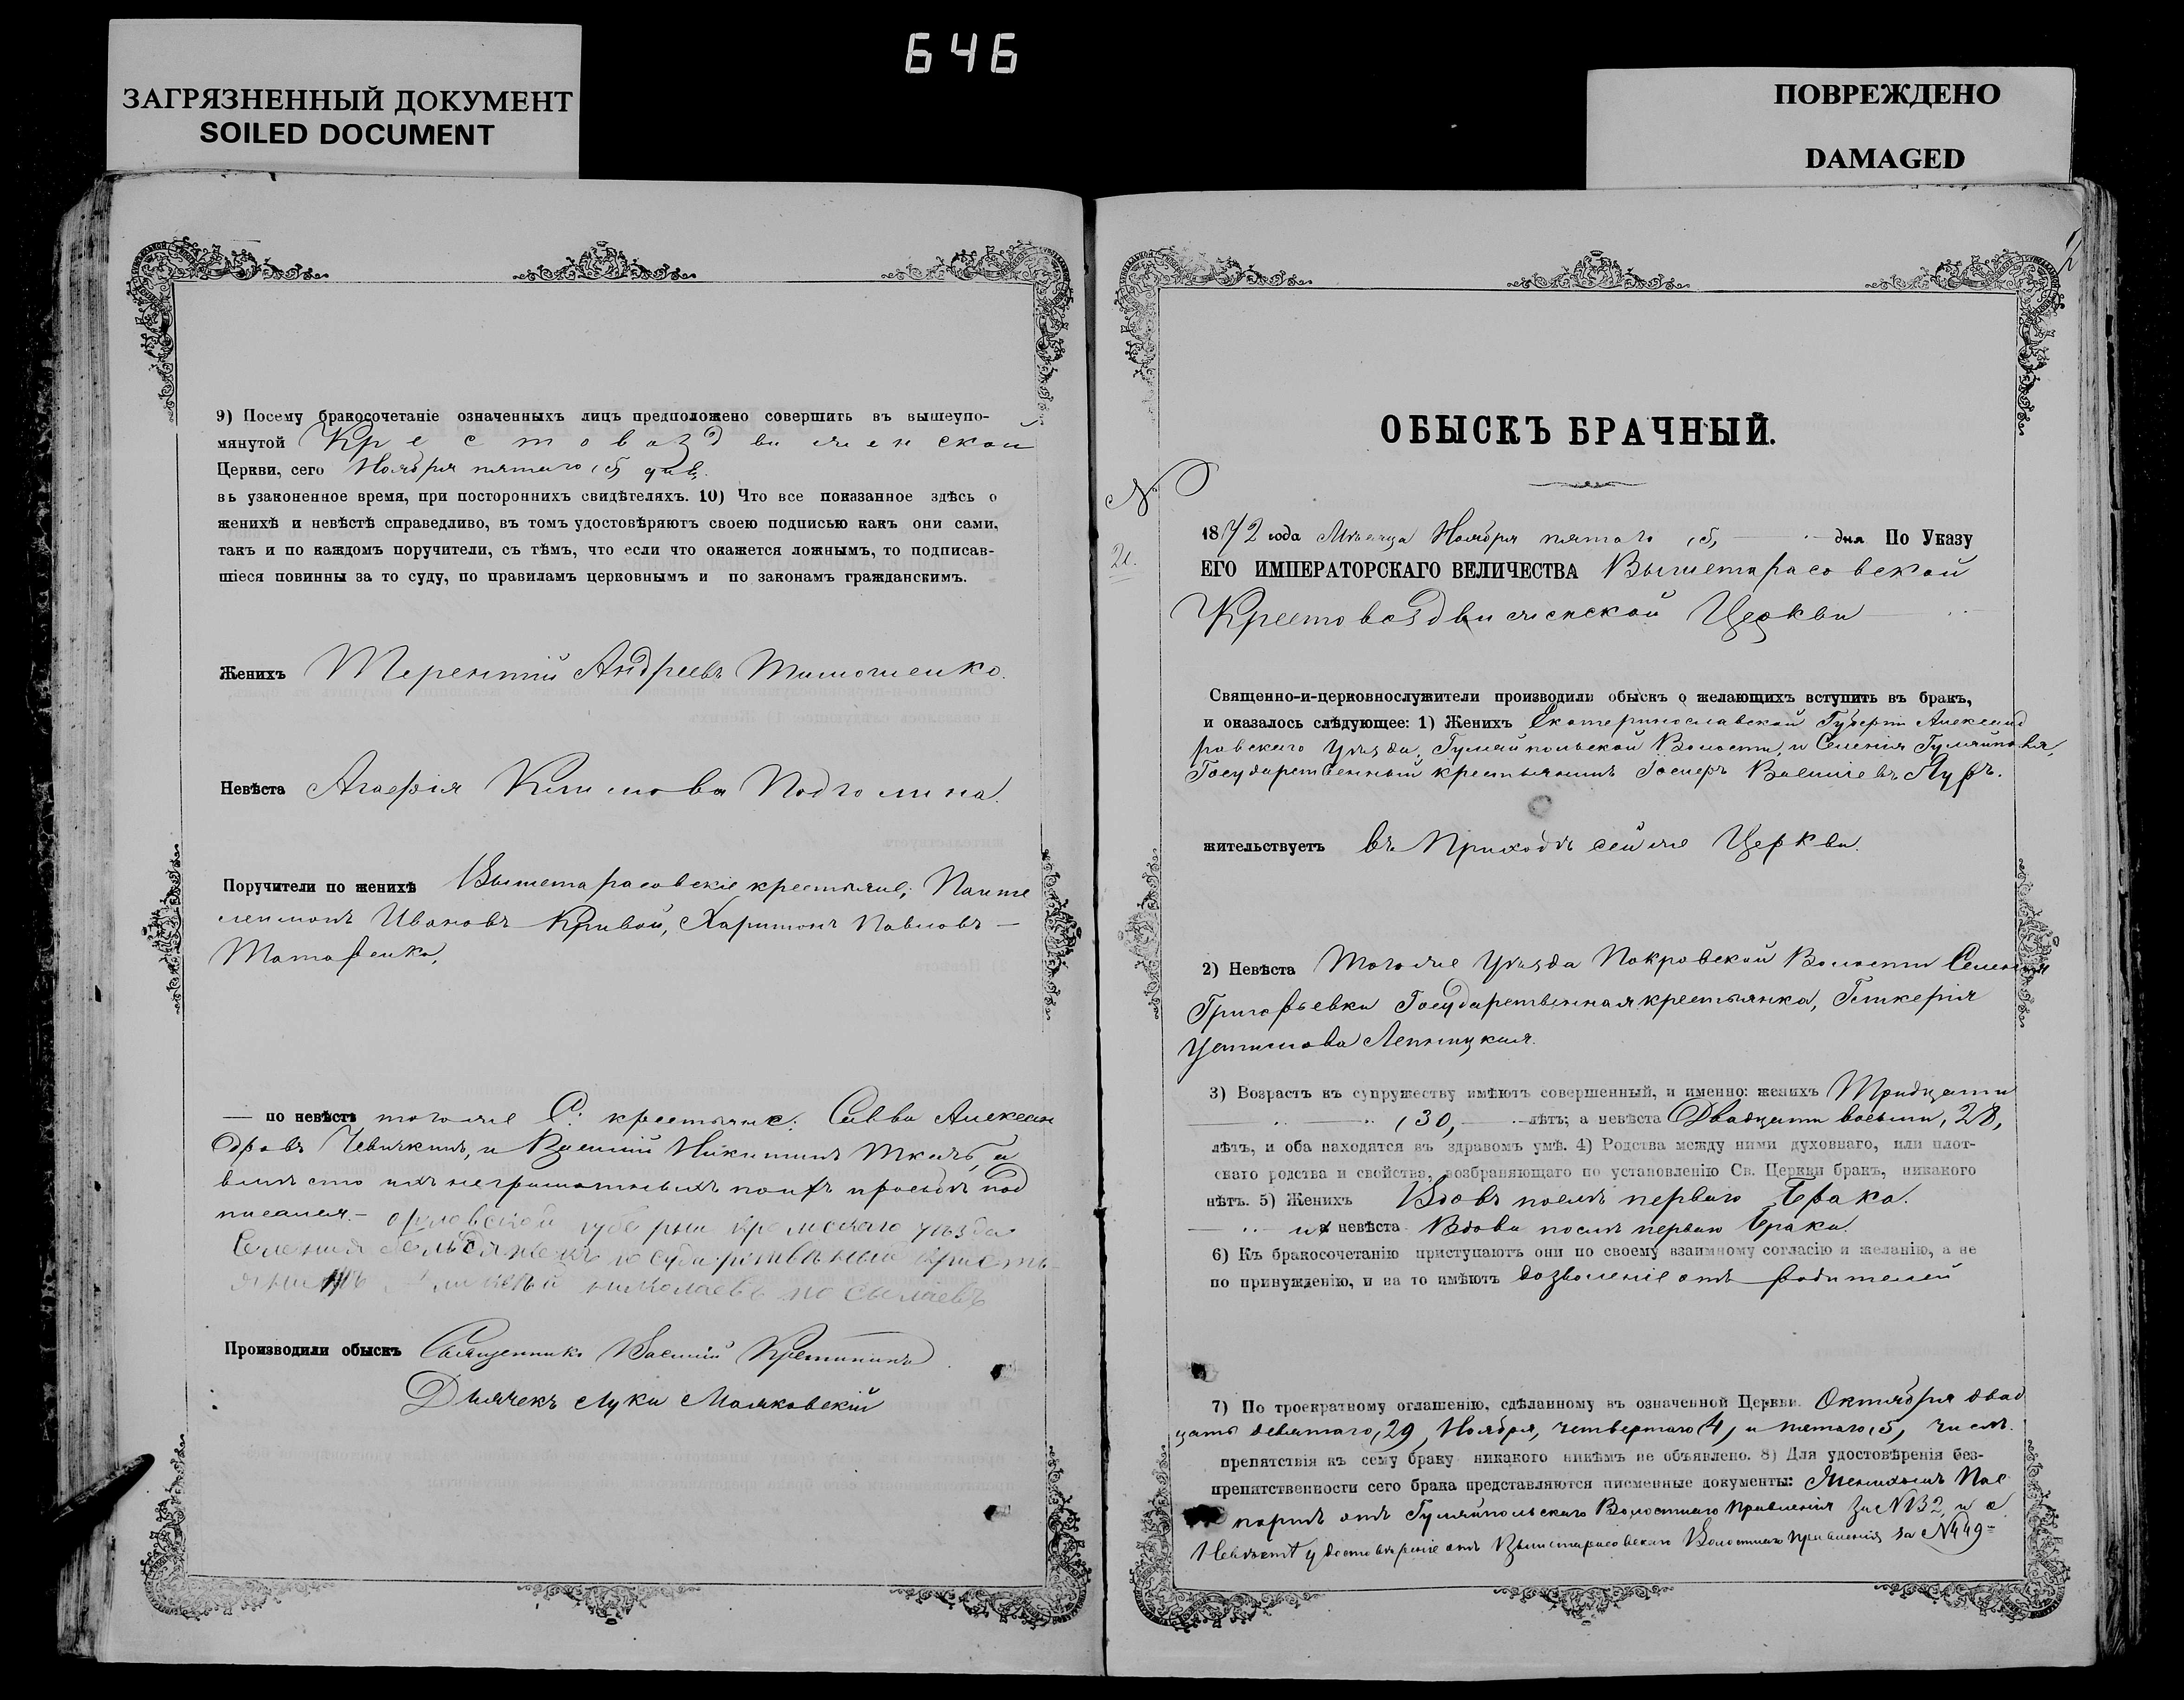 646
ЗАГРЯЗНЕННЫЙ ДОКУМЕНТ
SOILED DOCUMENT
ПОВРЕЖДЕНО
DAMAGED
9) Посему бракосочетаніе означенныхъ лицъ предположено совершить въ вышеупо-
мянутой Крестовоздвиженской
Церкви, сего Ноября пятаго (5, дня,
въ узаконенное время, при постороннихъ свидѣтеляхъ. 10) Что все показанное здѣсь о
женихѣ и невѣстѣ справедливо, въ томъ удостовѣряютъ своею подписью какъ они сами,
такъ и по каждомъ поручители, съ тѣмъ, что если что окажется ложнымъ, то подписав-
шіеся повинны за то суду, по правиламъ церковнымъ и по законамъ гражданскимъ.
Женихъ Терентій Андреевъ Тимошенко.
Невѣста Агафія Климова Подголина.
Поручители по женихѣ Вышетарасовскіе крестьяне, Панте
леимонъ Ивановъ Кривой, Харитонъ Павловъ —
Татаренко,
— по невѣстѣ тогоже С. крестьяне: Савва Алексан
дровъ Чевычкинъ, и Василій Никитинъ Ткачъ, а
вмѣсто ихъ неграмотныхъ поихъ прозьбѣ под
писался — орловской губерни кромскаго уѣзда
Селения государственный кристь-
янинъ николаевъ
Производили обыскъ Священникъ Василій Кретининъ
Дьячекъ Лука Маляковскій
ОБЫСКЪ БРАЧНЫЙ.
№
21.
1872 года Мѣсяца Ноября пятаго (5, — дня По Указу
ЕГО ИМПЕРАТОРСКАГО ВЕЛИЧЕСТВА Вышетарасовской
Крестовоздвиженской Церкви
Священно-и-церковнослужители производили обыскъ о желающихъ вступить въ бракъ,
и оказалось слѣдующее: 1) Женихъ Екатеринославской Губерніи Александ
ровскаго Уѣзда, Гуляйпольской Волости, и Селенія Гуляйполя,
Государственный крестьянинъ Іосифъ Васильевъ
жительствуетъ въ Приходѣ сейже Церкви.
2) Невѣста Тогоже Уѣзда Покровской Волости Селенія
Григорьевки Государственная крестьянка, Гликерія
Устимова
3) Возрастъ къ супружеству имѣютъ совершенный, и именно: женихъ Тридцати
(30, — лѣтъ; а невѣста Двадцати восьми, 28,
лѣтъ, и оба находятся въ здравомъ умѣ. 4) Родства между ними духовнаго, или плот-
скаго родства и свойства, возбраняющаго по установленію Св. Церкви бракъ, никакого
нѣтъ. 5) Женихъ Вдовъ послѣ перваго Брака.
и невѣста Вдова послѣ перваго Брака.
6) Къ бракосочетанію приступаютъ они по своему взаимному согласію и желанію, а не
по принужденію, и на то имѣютъ дозволеніе отъ родителей
7) По троекратному оглашенію, сдѣланному въ означенной Церкви Октября двад
цать девятаго, 29, Ноября, четвертаго (4, и пятаго, (5, числъ.
препятствія къ сему браку никакого никѣмъ не объявлено. 8) Для удостовѣренія без-
препятственности сего брака представляются писменные документы: Женихомъ Пас
портъ отъ Гуляйпольскаго Волостнаго Правленія за N132, и о
Невѣстѣ удостовѣреніе отъ Вышетарасовскаго Волостнаго Правленія за N449